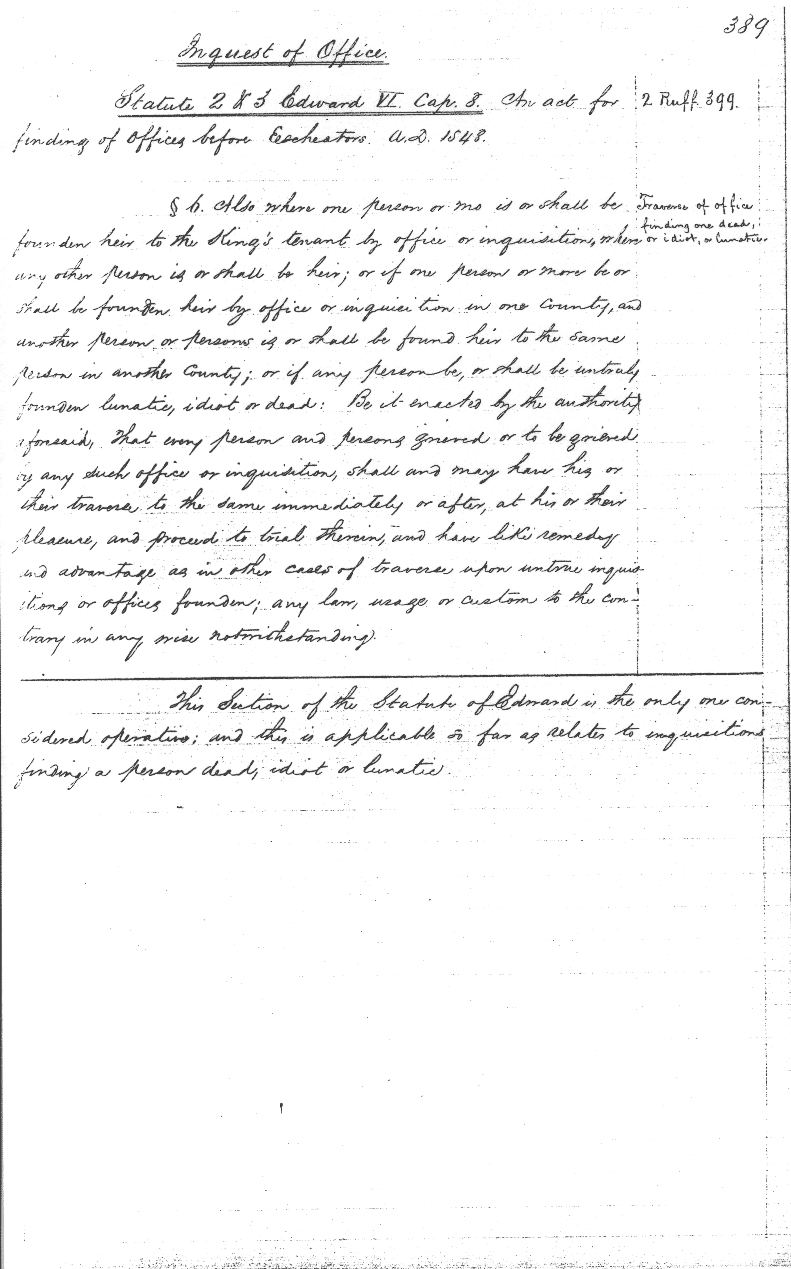 389
Inquest of Office.
Statute 2 & 3 Edward VI. Cap. 8. An act for
2 Ruff. 399.
finding of Offices before Escheators. A.D. 1548.
§ 6. Also where one person or mo is or shall be
Traverse of office
finding one dead,
or idiot, or lunatic.
founden heir to the King's tenant by office or inquisition, where
any other person is or shall be heir; or if one person or more be or
shall be founden heir by office or inquisition in one County, and
another person or persons is or shall be found heir to the same
person in another County; or if any person be, or shall be untruly
founden lunatic, idiot or dead: Be it enacted by the authority
aforesaid, That every person and persons grieved or to be grieved
by any such office or inquisition, shall and may have his or
their traverse to the same immediately or after, at his or their
pleasure, and proceed to trial therein, and have like remedy
and advantage as in other cases of traverse upon untrue inquis-
itions or offices founden; any law, usage or custom to the con-
trary in any wise notwithstanding.
This Section of the Statute of Edward is the only one con-
sidered operative; and this is applicable so far as relates to inquisitions
finding a person dead, idiot or lunatic.